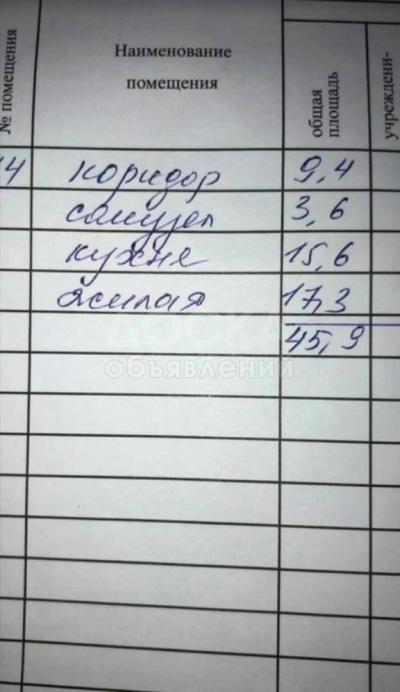 № помещения
Наименование помещения
общая площадь
учреждени-
14 коридор 9,4
санузел 3,6
кухня 15,6
жилая 17,3
45,9
ДОСКА
объявлений